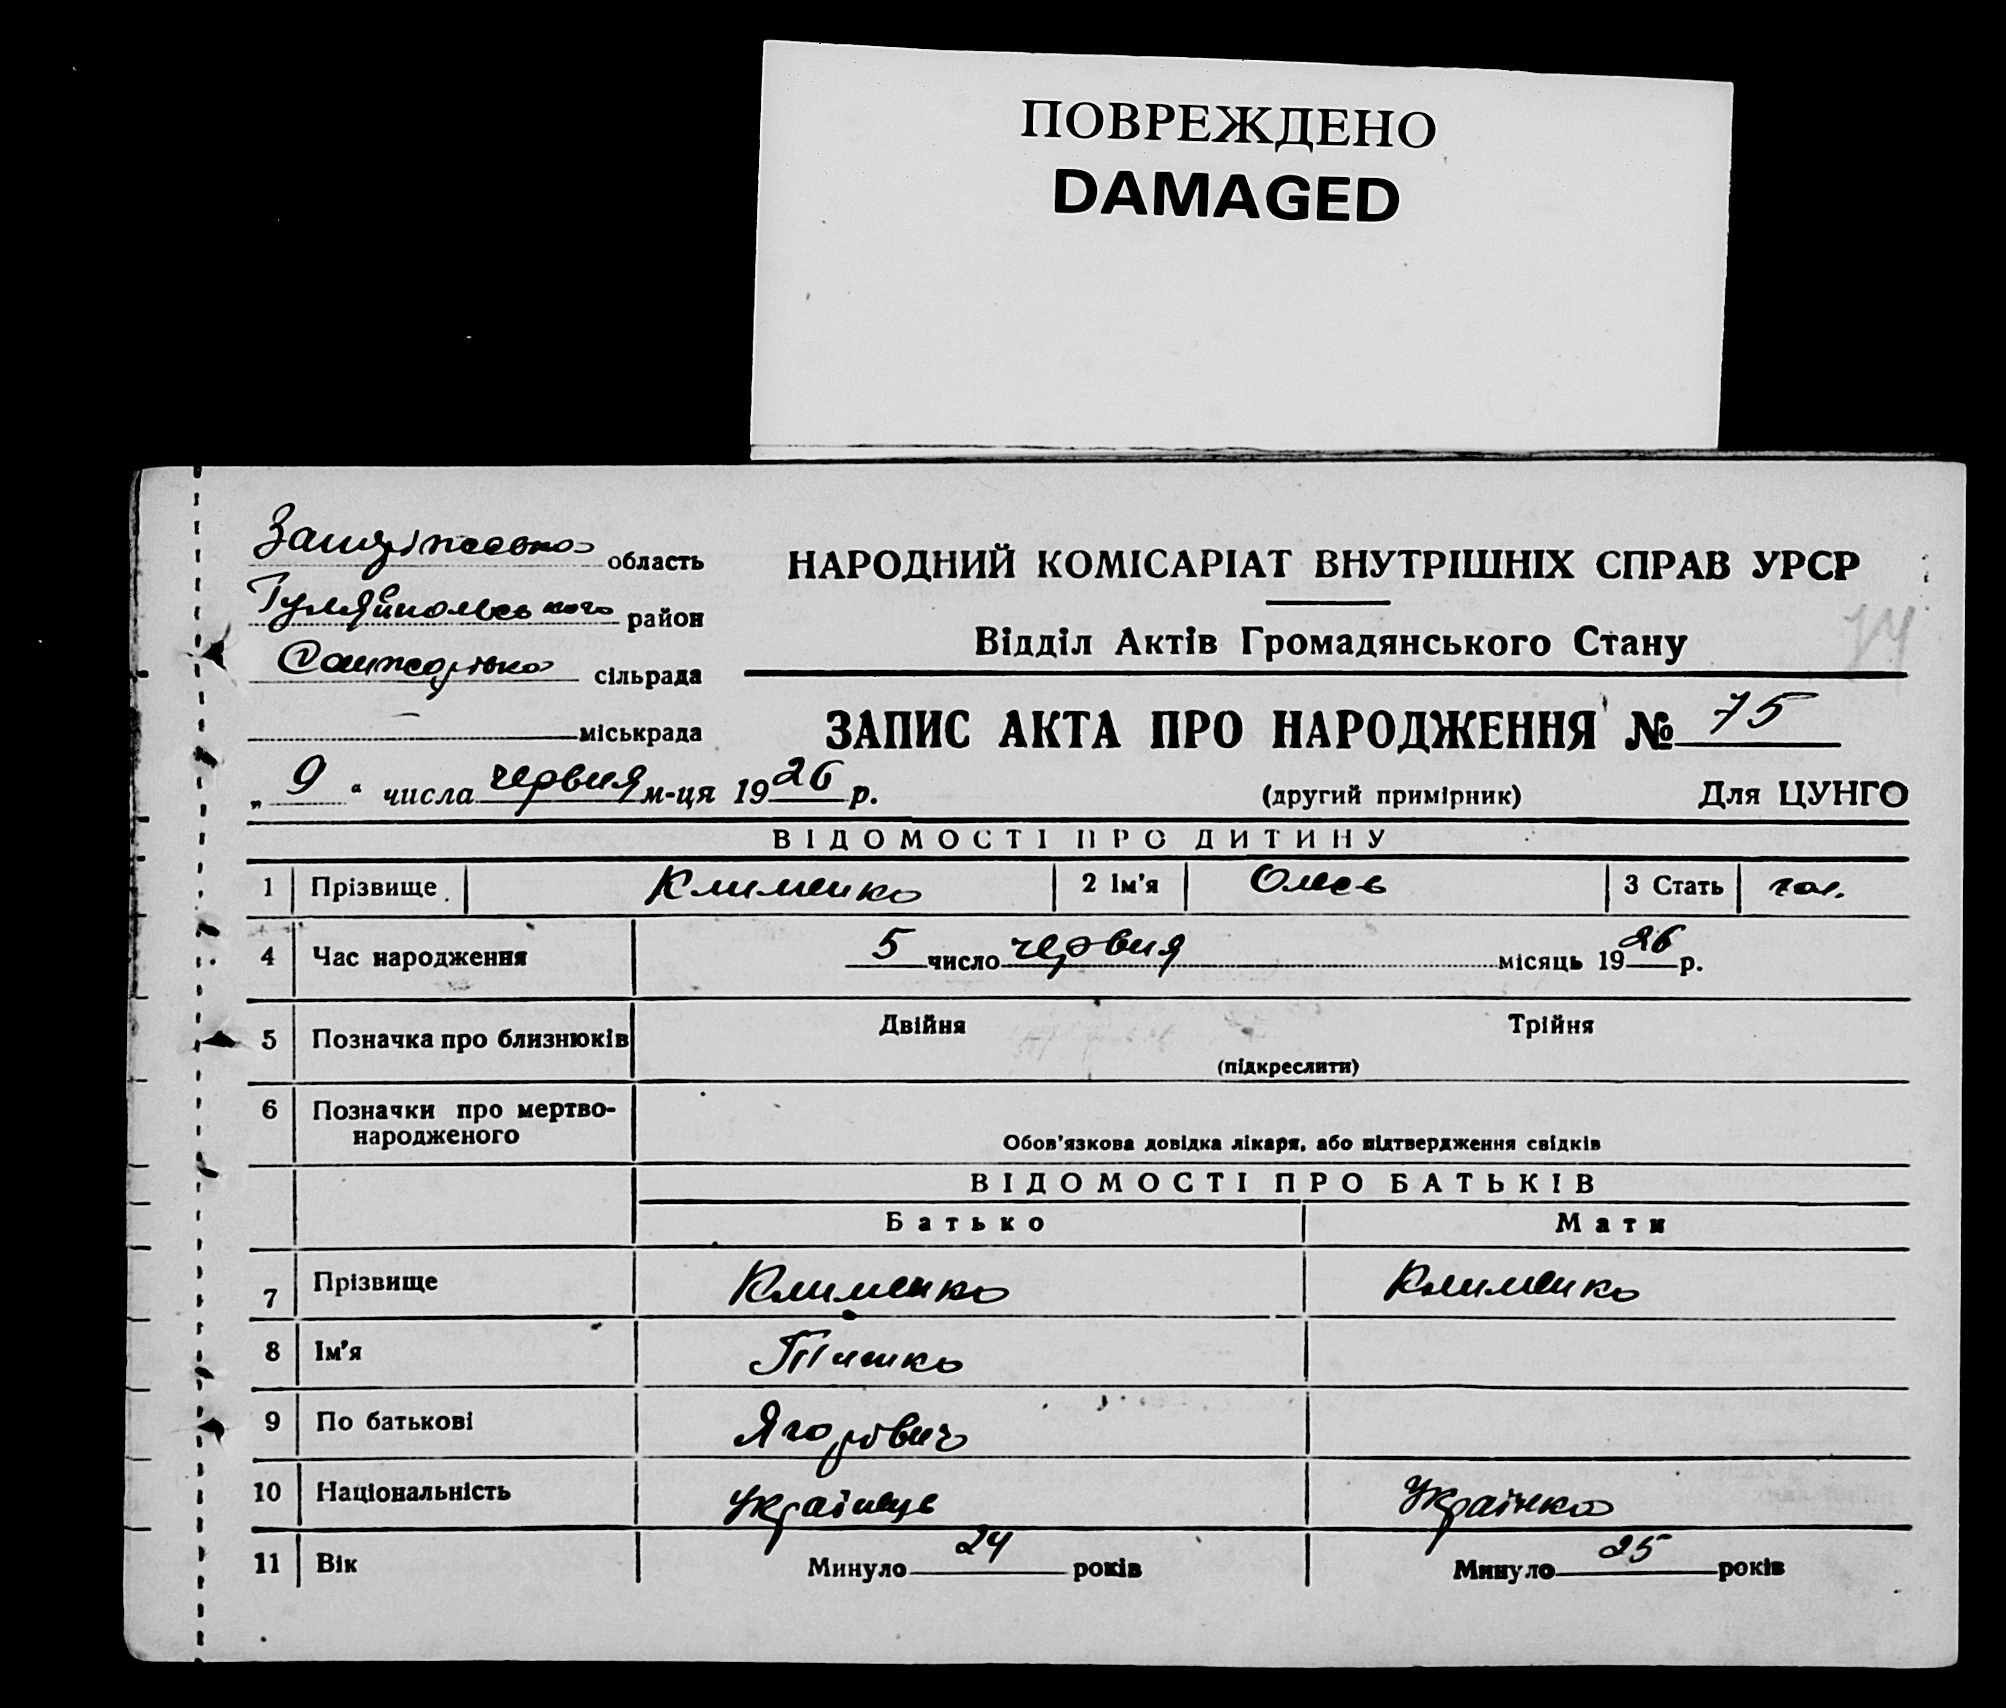 ПОВРЕЖДЕНО
DAMAGED
Запоріжська область
Гуляйпольського район
Санжарівка сільрада
міськрада
НАРОДНИЙ КОМІСАРІАТ ВНУТРІШНІХ СПРАВ УРСР
Відділ Актів Громадянського Стану
ЗАПИС АКТА ПРО НАРОДЖЕННЯ № 75
„ 9 “ числа червня м-ця 1926 р.
(другий примірник) Для ЦУНГО
ВІДОМОСТІ ПРО ДИТИНУ
1 Прізвище Клименко 2 Ім'я Олесь 3 Стать чол.
4 Час народження 5 число червня місяць 1926 р.
5 Позначка про близнюків Двійня Трійня
(підкреслити)
6 Позначки про мертво-
народженого
Обов'язкова довідка лікаря, або підтвердження свідків
ВІДОМОСТІ ПРО БАТЬКІВ
Батько Мати
7 Прізвище Клименко Клименко
8 Ім'я Тишко
9 По батькові Ягорович
10 Національність Українець Українка
11 Вік Минуло 24 років Минуло 25 років